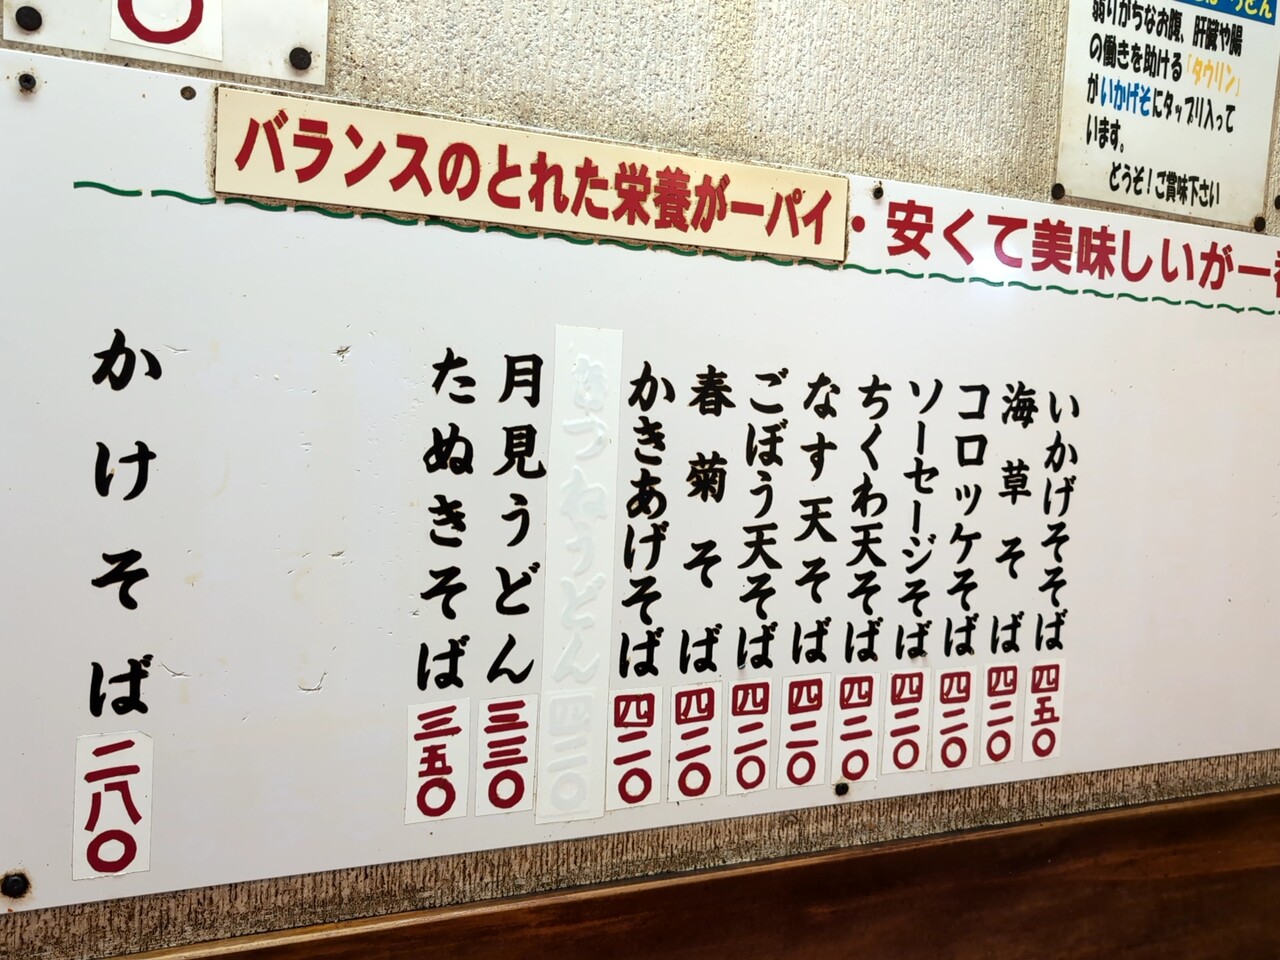 〇
うどん
弱りがちなお腹、肝臓や腸
の働きを助ける「タウリン」
がいかげそにタップリ入って
います。
どうぞ!ご賞味下さい
バランスのとれた栄養が一パイ
・安くて美味しいが一番
いかげそそば 四五〇
海草そば 四二〇
コロッケそば 四二〇
ソーセージそば 四二〇
ちくわ天そば 四二〇
なす天そば 四二〇
ごぼう天そば 四二〇
春菊そば 四二〇
かきあげそば 四二〇
きつねうどん 四二〇
月見うどん 三三〇
たぬきそば 三五〇
かけそば 二八〇